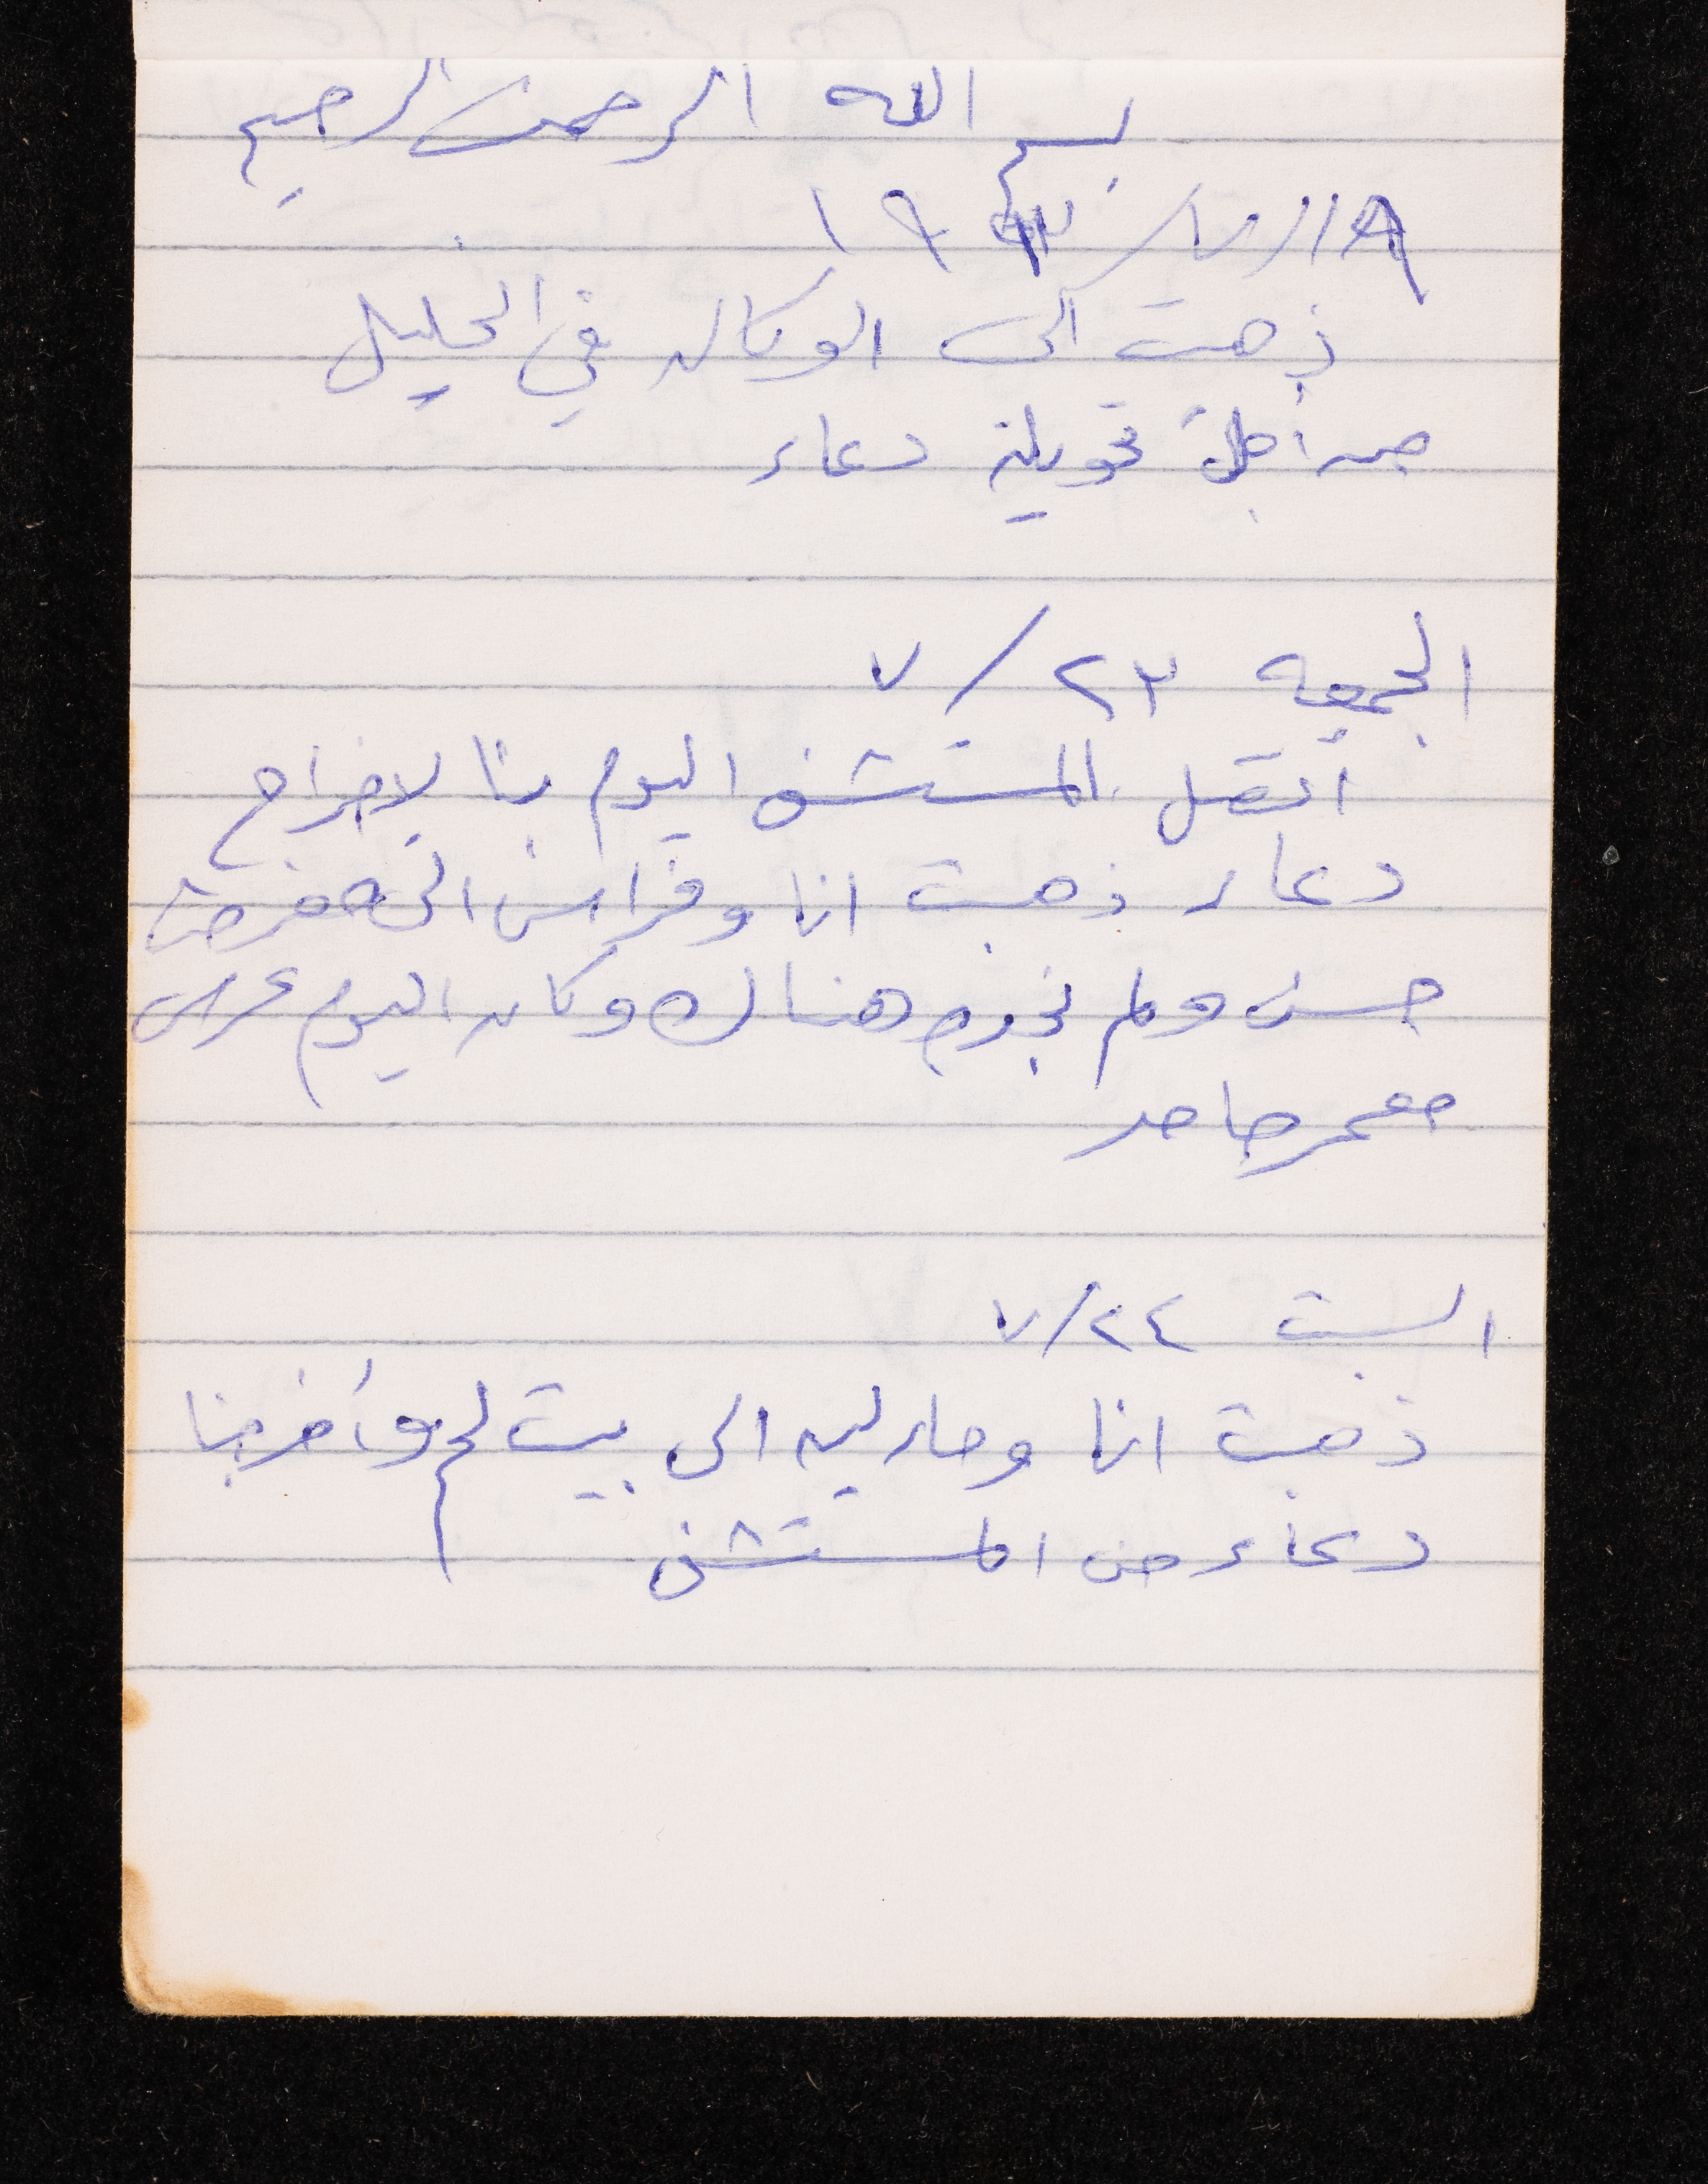 بسم الله الرحمن الرحيم
١٩/٧/١٩٩٣
ذهبت الى الوكاله في الخليل
من أجل تحويلة دعاء
الجمعه ٢٣/٧
أتصل المستشفى اليوم بنا لاخراج
دعاء ذهبت انا وفراس الى
حسن ولم نجده هناك وكان اليوم عرس
معمر حامد
السبت ٢٤/٧
ذهبت انا ومادلين الى بيت لحم وأخرجنا
دعاء من المستشفى